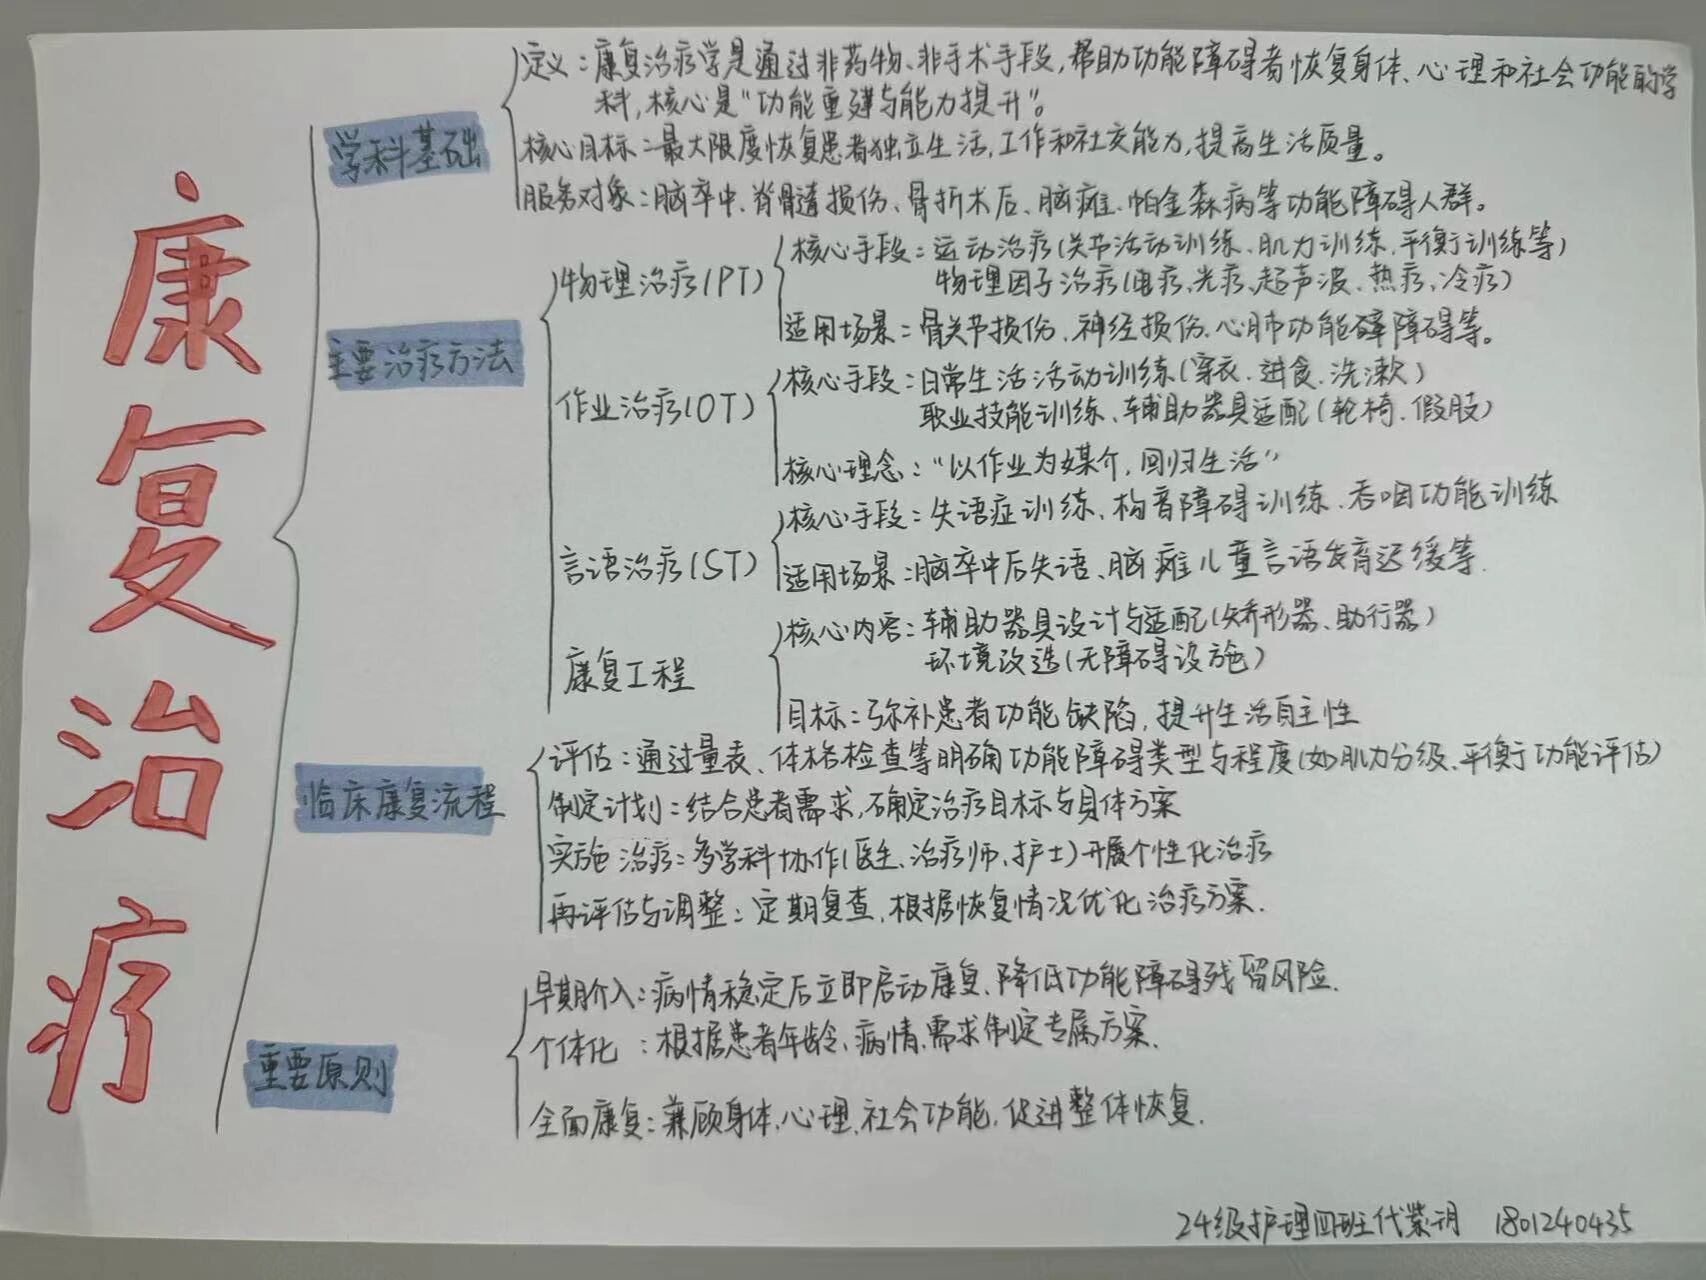 康复治疗
学科基础
定义：康复治疗学是通过非药物、非手术手段，帮助功能障碍者恢复身体、心理和社会功能的学
科，核心是“功能重建与能力提升”。
核心目标：最大限度恢复患者独立生活、工作和社交能力，提高生活质量。
服务对象：脑卒中、脊骨髓损伤、骨折术后、脑瘫、帕金森病等功能障碍人群。
主要治疗方法
物理治疗(PT)
核心手段：运动治疗(关节活动训练、肌力训练、平衡训练等)
物理因子治疗(电疗、光疗、超声波、热疗、冷疗)
适用场景：骨关节损伤、神经损伤、心肺功能障碍等。
作业治疗(OT)
核心手段：日常生活活动训练(穿衣、进食、洗漱)
职业技能训练、辅助器具适配(轮椅、假肢)
核心理念：“以作业为媒介，回归生活”
言语治疗(ST)
核心手段：失语症训练、构音障碍训练、吞咽功能训练
适用场景：脑卒中后失语、脑瘫儿童言语发育迟缓等.
康复工程
核心内容：辅助器具设计与适配(矫形器、助行器)
环境改造(无障碍设施)
目标：弥补患者功能缺陷，提升生活自主性
临床康复流程
评估：通过量表、体格检查等明确功能障碍类型与程度(如肌力分级、平衡功能评估)
制定计划：结合患者需求，确定治疗目标与具体方案
实施治疗：多学科协作(医生、治疗师、护士)开展个性化治疗
再评估与调整：定期复查，根据恢复情况优化治疗方案.
重要原则
早期介入：病情稳定后立即启动康复、降低功能障碍残留风险.
个体化：根据患者年龄、病情、需求制定专属方案.
全面康复：兼顾身体、心理、社会功能，促进整体恢复.
24级护理四班代紫玥 1801240435